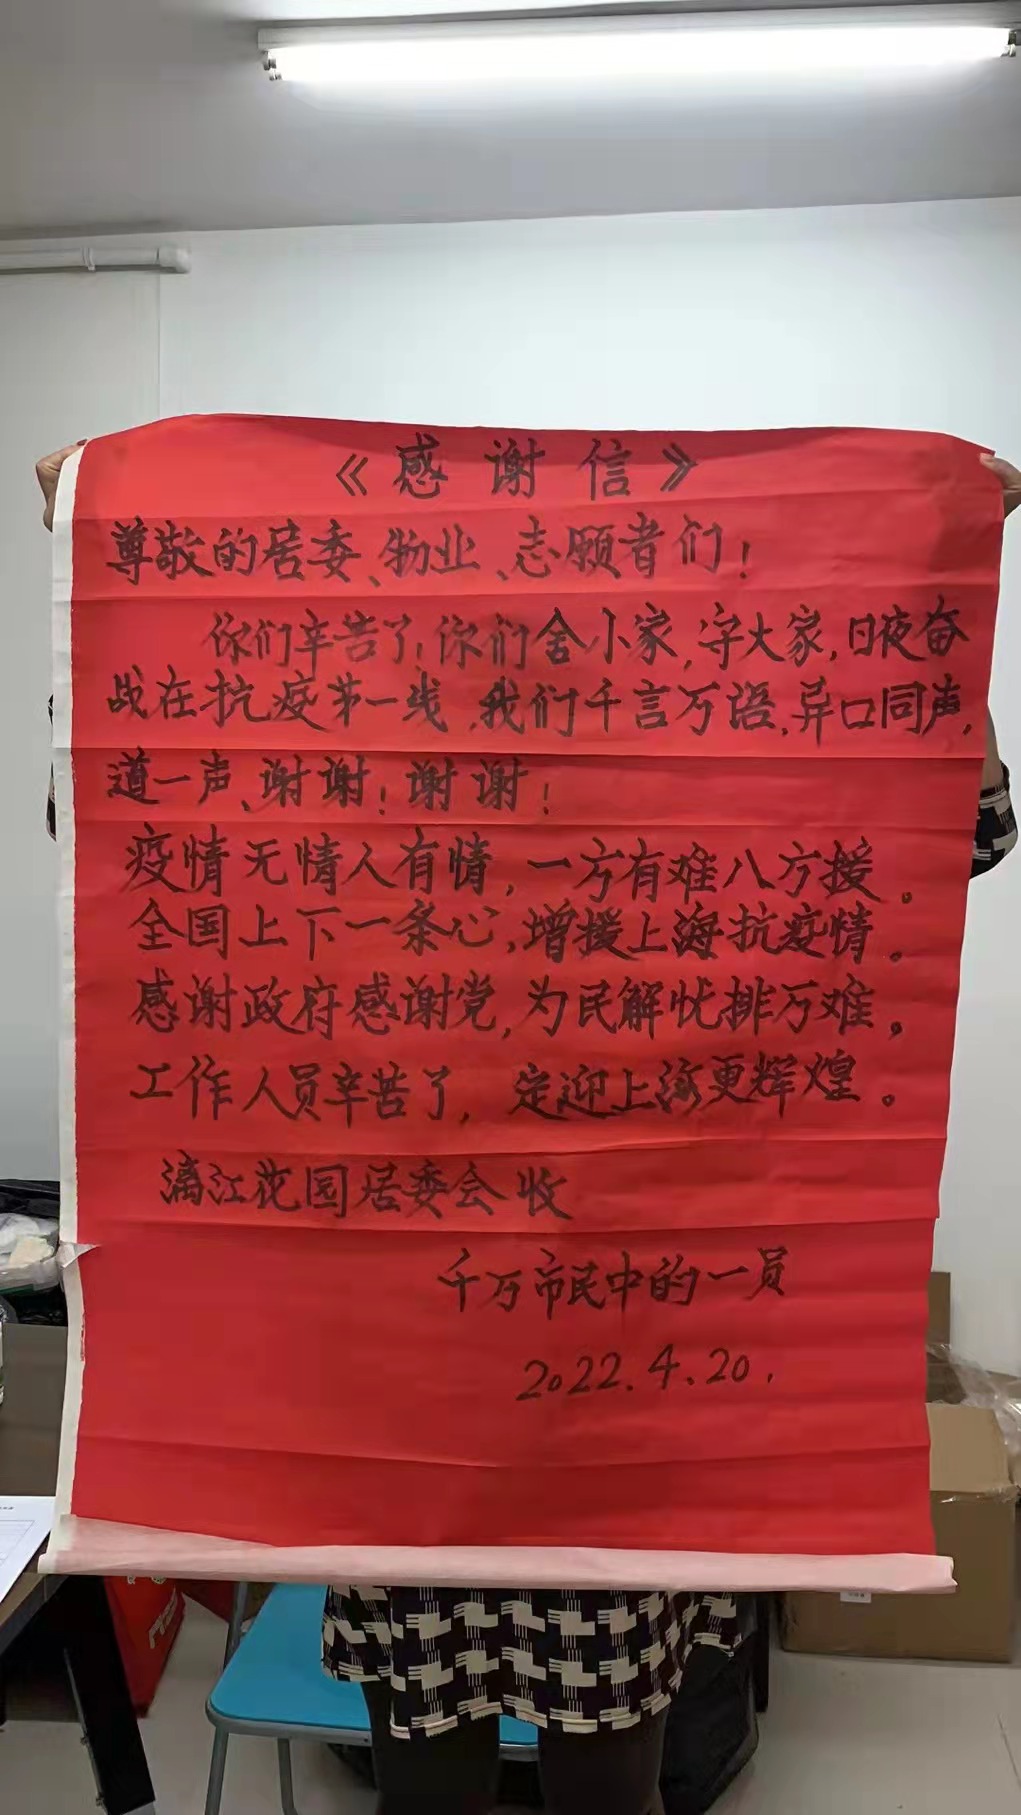 《感谢信》
尊敬的居委、物业、志愿者们！
你们辛苦了！你们舍小家，守大家，日夜奋
战在抗疫第一线，我们千言万语，异口同声，
道一声、谢谢！谢谢！
疫情无情人有情，一方有难八方援。
全国上下一条心，增援上海抗疫情。
感谢政府感谢党，为民解忧排万难。
工作人员辛苦了，定迎上海更辉煌。
漓江花园居委会收
千万市民中的一员
2022.4.20.